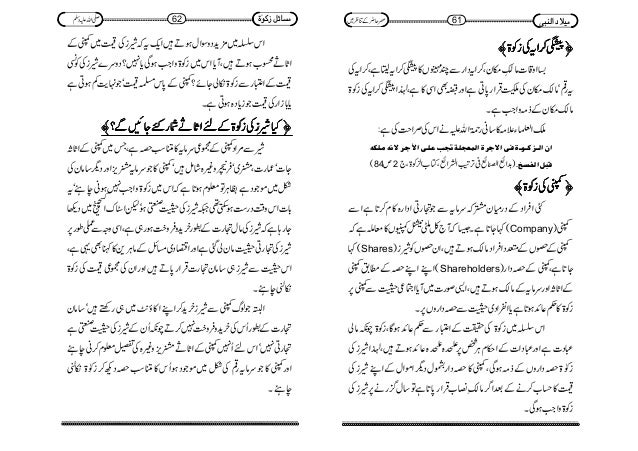 میلاد النبی
61
عصر حاضر کے تناظر میں
﴿ پیشگی کرایہ کی زکوٰۃ ﴾
بسا اوقات مالک مکان، کرایہ دار سے چند مہینوں کا پیشگی کرایہ لیتا ہے، کرایہ کی
یہ رقم مالک مکان کی ملکیت قرار پاتی ہے اور قبضہ بھی اسی کا ہے، لہذا پیشگی کرایہ کی زکوٰۃ
مالک مکان کے ذمہ واجب ہے۔
ملک العلماء علامہ کاسانی رحمۃ اللہ علیہ نے اس کی صراحت کی ہے:
ان الزكوة فى الاجرة المعجلة تجب على الأجر لانه ملكه
قبل الفسخ. (بدائع الصنائع فی ترتیب الشرائع، کتاب الزکوٰۃ، ج 2 ص 84)
﴿ کمپنی کی زکوٰۃ ﴾
کئی افراد کے درمیان مشترکہ سرمایہ سے جو تجارتی ادارہ کام کرتا ہے اسے
کمپنی (Company) کہا جاتا ہے، جیسا کہ آج کل ملٹی نیشنل کمپنیوں کا معاملہ ہے کہ
کمپنی کے حصوں کے متعدد افراد مالک ہوتے ہیں، ان حصوں کو شیئرز (Shares) کہا
جاتا ہے، کمپنی کے حصہ دار (Shareholders) اپنے اپنے حصہ کے مطابق کمپنی
کے اثاثہ اور سرمایہ کے مالک ہوتے ہیں، ایسی صورت میں آیا اجتماعی حیثیت سے کمپنی پر
زکوٰۃ کا حکم عائد ہوتا ہے یا انفرادی حیثیت سے حصہ داروں پر۔
اس سلسلہ میں زکوٰۃ کی حقیقت کے اعتبار سے حکم عائد ہوگا، زکوٰۃ چونکہ مالی
عبادت ہے اور عبادات کے احکام ہر شخص پر علحدہ علحدہ عائد ہوتے ہیں، لہذا شیئرز کی
زکوٰۃ حصہ داروں کے ذمہ ہوگی، کمپنی کا حصہ دار بشمول دیگر اموال کے اپنے شیئرز کی
قیمت کا حساب کرنے کے بعد اگر مالک نصاب قرار پاتا ہے تو سال گزرنے پر شیئرز کی
زکوٰۃ واجب ہوگی۔
مسائل زکوۃ
62
صلی اللہ علیہ وسلم
اس سلسلہ میں مزید دو سوال ہوتے ہیں ایک یہ کہ شیئرز کی قیمت میں کمپنی کے
اثاثے محسوب ہوتے ہیں، آیا اس میں زکوٰۃ واجب ہوگی یا نہیں؟ دوسرے شیئرز کی کونسی
قیمت کے اعتبار سے زکوٰۃ نکالی جائے؟ کمپنی کے پاس مسلمہ قیمت جو نہایت کم ہوتی ہے
یا بازار کی قیمت جو زیادہ ہوتی ہے۔
﴿ کیا شیئرز کی زکوٰۃ کے لئے اثاثے شمار کئے جائیں گے؟ ﴾
شیئر سے مراد کمپنی کے مجموعی سرمایہ کا متناسب حصہ ہے، جس میں کمپنی کے اثاثہ
جات‘ عمارت، مشنری‘ فرنیچر وغیرہ شامل ہیں‘ کمپنی کا جو سرمایہ مشنریز اور دیگر سامان کی
شکل میں موجود ہے بظاہر تو معلوم ہوتا ہے کہ اس میں زکوٰۃ واجب نہیں ہونی چاہئے‘ یہ
بات اس وقت درست ہوسکتی تھی جبکہ شیئرز کی حیثیت صنعتی ہو‘ لیکن اسٹاک ایکسچینج میں دیکھا
جا رہا ہے کہ شیئرز کی مال تجارت کے بطور خرید و فروخت ہو رہی ہے، اسی وجہ سے عملی طور پر
شیئرز کی تجارتی حیثیت مان لی گئی ہے اور اقتصادی مسائل کے ماہرین کا کہنا بھی یہی ہے،
اس حیثیت سے شیئرز ہی سامان تجارت قرار پاتے ہیں اور ان کی مجموعی قیمت کی زکوٰۃ
نکالنی چاہئے۔
البتہ جو لوگ کمپنی سے شیئرز خرید کر اپنے اکاؤنٹ میں ہی رکھتے ہیں‘ سامان
تجارت کے بطور اُس کی خرید و فروخت نہیں کرتے چونکہ اُن کے شیئرز کی حیثیت صنعتی ہے
تجارتی نہیں‘ اس لئے اُنہیں کمپنی کے اثاثے مشنریز وغیرہ کی تفصیل معلوم کرنی چاہئے
اور کمپنی کا جو سرمایہ رقم کی شکل میں موجود ہو اُس کا متناسب حصہ دیکھ کر زکوٰۃ نکالنی
چاہئے۔